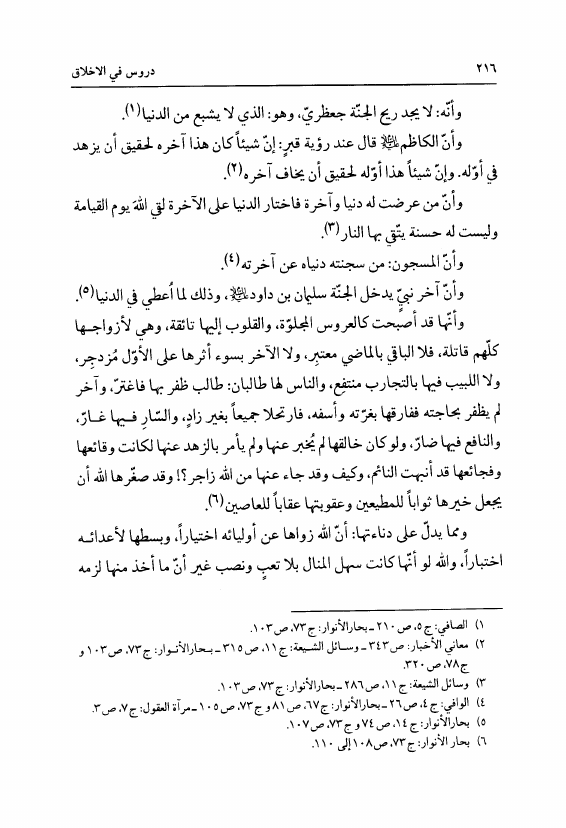 ٢١٦ دروس في الاخلاق
وأنّه: لا يجد ريح الجنّة جعظريّ، وهو: الذي لا يشبع من الدنيا(١).
وأنّ الكاظم عليه السلام قال عند رؤية قبرٍ: إنّ شيئاً كان هذا آخره لحقيق أن يزهد
في أوّله. وإنّ شيئاً هذا أوّله لحقيق أن يخاف آخره(٢).
وأنّ من عرضت له دنيا وآخرة فاختار الدنيا على الآخرة لقي اللهَ يوم القيامة
وليست له حسنة يتّقي بها النار(٣).
وأنّ المسجون: من سجنته دنياه عن آخرته(٤).
وأنّ آخر نبيّ يدخل الجنّة سليمان بن داود عليه السلام، وذلك لما اُعطي في الدنيا(٥).
وأنّها قد أصبحت كالعروس المجلوّة، والقلوب إليها تائقة، وهي لأزواجها
كلّهم قاتلة، فلا الباقي بالماضي معتبِر، ولا الآخر بسوء أثرها على الأوّل مُزدجِر،
ولا اللبيب فيها بالتجارب منتفِع، والناس لها طالبان: طالب ظفر بها فاغترّ، وآخر
لم يظفر بحاجته ففارقها بغرّته وأسفه، فارتحلا جميعاً بغير زادٍ، والسّارِ فيها غارّ،
والنافع فيها ضارّ، ولو كان خالقها لم يُخبر عنها ولم يأمر بالزهد عنها لكانت وقائعها
وفجائعها قد أنبهت النائم، وكيف وقد جاء عنها من الله زاجر؟! وقد صغّرها الله أن
يجعل خيرها ثواباً للمطيعين وعقوبتها عقاباً للعاصين(٦).
ومما يدلّ على دناءتها: أنّ الله زواها عن أوليائه اختياراً، وبسطها لأعدائه
اختباراً، والله لو أنّها كانت سهل المنال بلا تعبٍ ونصب غير أنّ ما أخذ منها لزمه
١) الصافي: ج٥، ص٢١٠ ـ بحارالأنوار: ج٧٣، ص١٠٣.
٢) معاني الأخبار: ص٣٤٣ ـ وسائل الشيعة: ج١١، ص٣١٥ ـ بحارالأنوار: ج٧٣، ص١٠٣ و
ج٧٨، ص٣٢٠.
٣) وسائل الشيعة: ج١١، ص٢٨٦ ـ بحارالأنوار: ج٧٣، ص١٠٣.
٤) الوافي: ج٤، ص٢٦ ـ بحارالأنوار: ج٦٧، ص٨١ و ج٧٣، ص١٠٥ ـ مرآة العقول: ج٧، ص٣.
٥) بحارالأنوار: ج١٤، ص٧٤ و ج٧٣، ص١٠٧.
٦) بحار الأنوار: ج٧٣، ص١٠٨ إلى ١١٠.